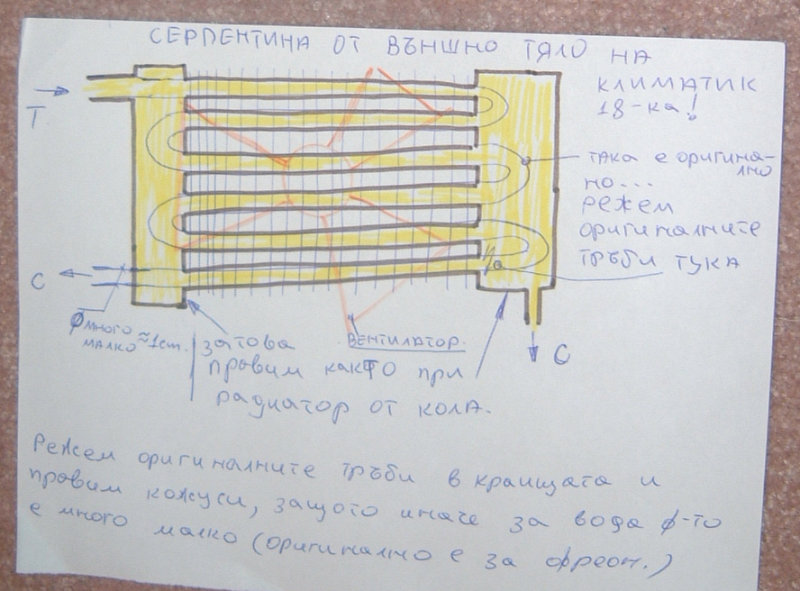 СЕРПЕНТИНА ОТ ВЪНШНО ТЯЛО НА
КЛИМАТИК
18-ка!
Т
така е оригинал-
но...
режем
оригиналните
тръби тука
С
Ф много ≈1cm.
малко
затова
правим както при
радиатор от кола.
ВЕНТИЛАТОР.
С
Режем оригиналните тръби в краищата и
правим кожуси, защото иначе за вода ф-то
е много малко (оригинално е за фреон.)